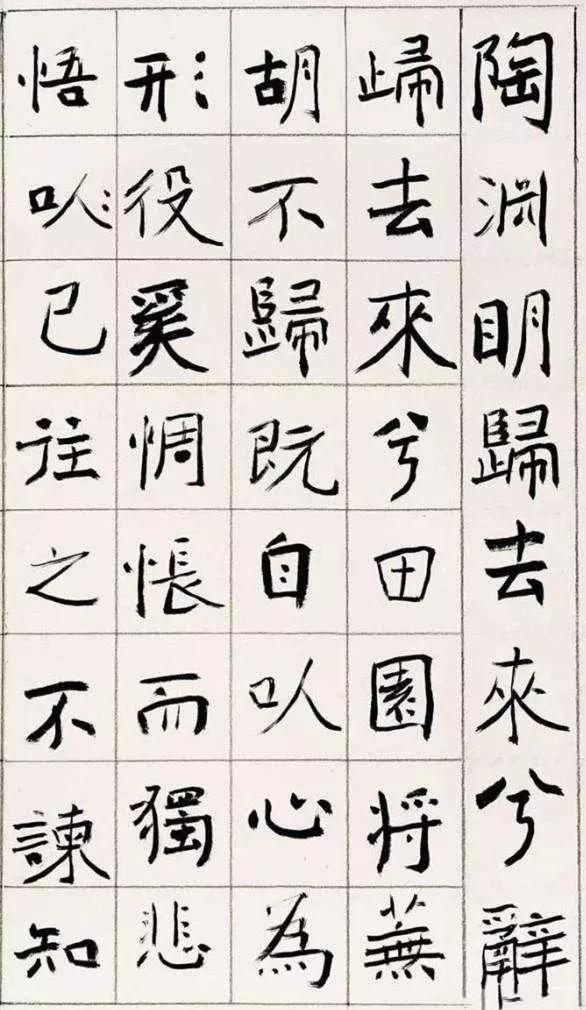 陶渊明歸去來兮辭
歸去來兮田園将蕪
胡不歸既自以心為
形役奚惆悵而獨悲
悟以已往之不諫知